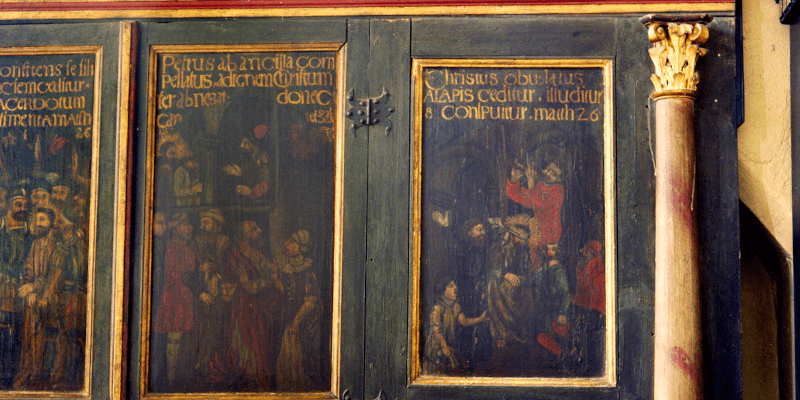 onfitens se fili
ACERDOTUM
26
Petrus ab ancilla com
pellatus. ad ignem Cristum
ter ab negat donec
Can
Christus obuelatus
ALAPIS Ceditur. illuditur
& Conspuitur. math 26